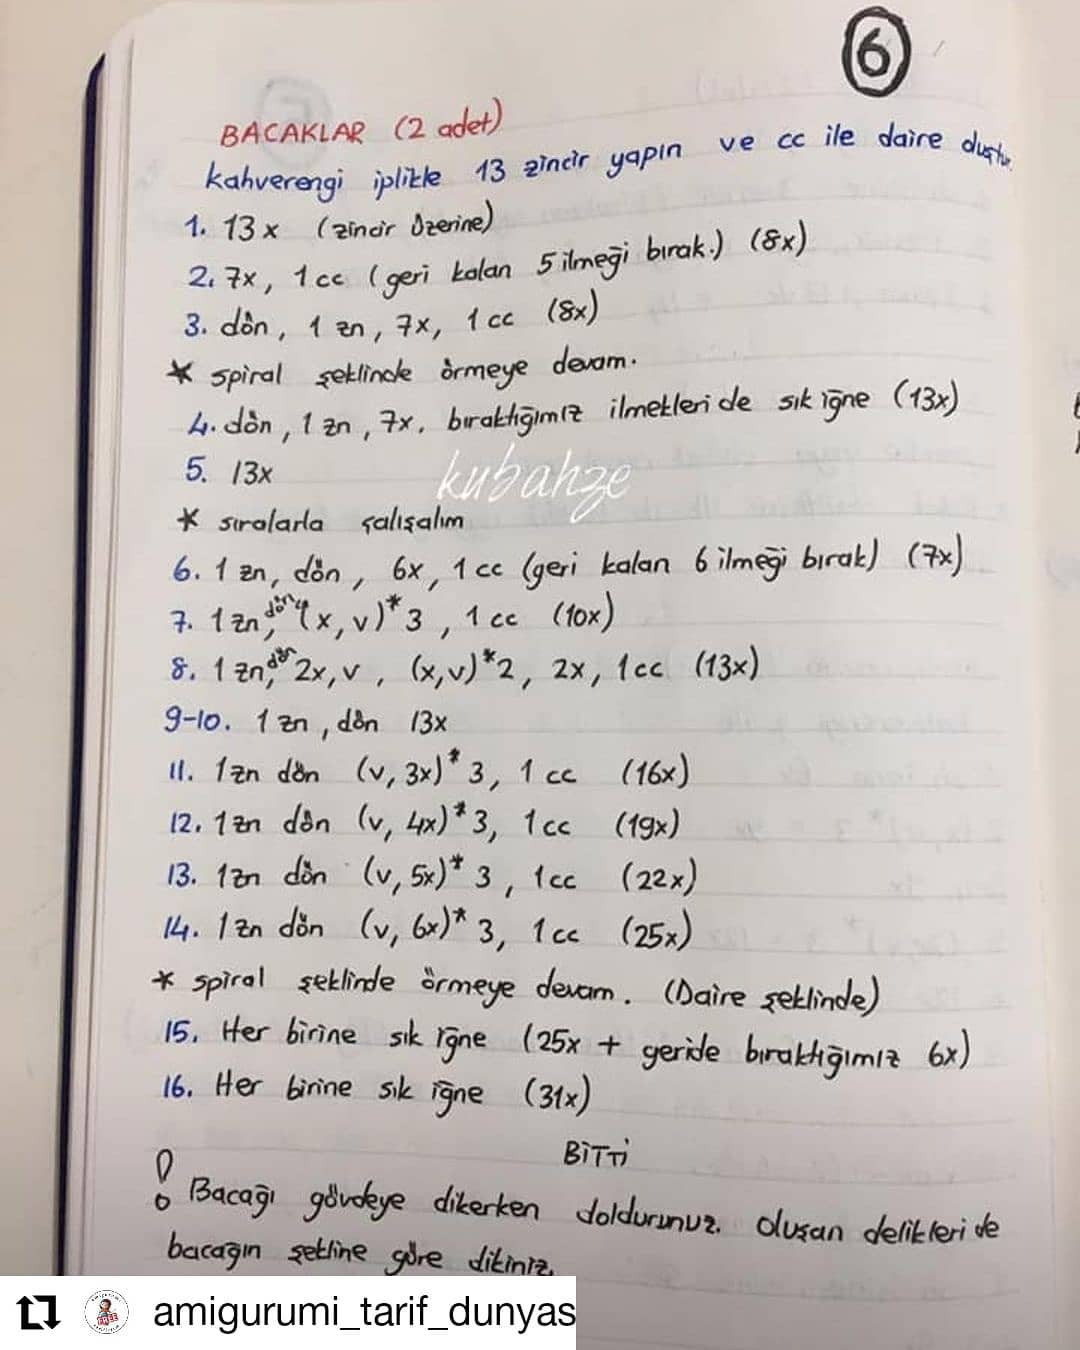 6
BACAKLAR (2 adet)
kahverengi iplikle 13 zincir yapın ve cc ile daire
1. 13x (zincir üzerine)
2. 7x, 1 cc (geri kalan 5 ilmeği bırak.) (8x)
3. dön, 1 zn, 7x, 1 cc (8x)
* spiral şeklinde örmeye devam.
4. dön, 1 zn, 7x, bıraktığımız ilmekleri de sık iğne (13x)
5. 13x
kubahze
* sıralarla çalışalım
6. 1 zn, dön, 6x, 1 cc (geri kalan 6 ilmeği bırak) (7x)
7. 1 zn, dön, (x, v)*3, 1 cc (10x)
8. 1 zn, dön 2x, v, (x, v)*2, 2x, 1cc (13x)
9-10. 1 zn, dön 13x
11. 1zn dön (v, 3x)*3, 1 cc (16x)
12. 1zn dön (v, 4x)*3, 1cc (19x)
13. 1zn dön (v, 5x)* 3, 1cc (22x)
14. 1zn dön (v, 6x)* 3, 1cc (25x)
* spiral şeklinde örmeye devam. (Daire şeklinde)
15. Her birine sık iğne (25x + geride bıraktığımız 6x)
16. Her birine sık iğne (31x)
BİTTİ
! Bacağı gövdeye dikerken doldurunuz. Oluşan delikleri de
bacağın şekline göre dikiniz.
amigurumi_tarif_dunyas